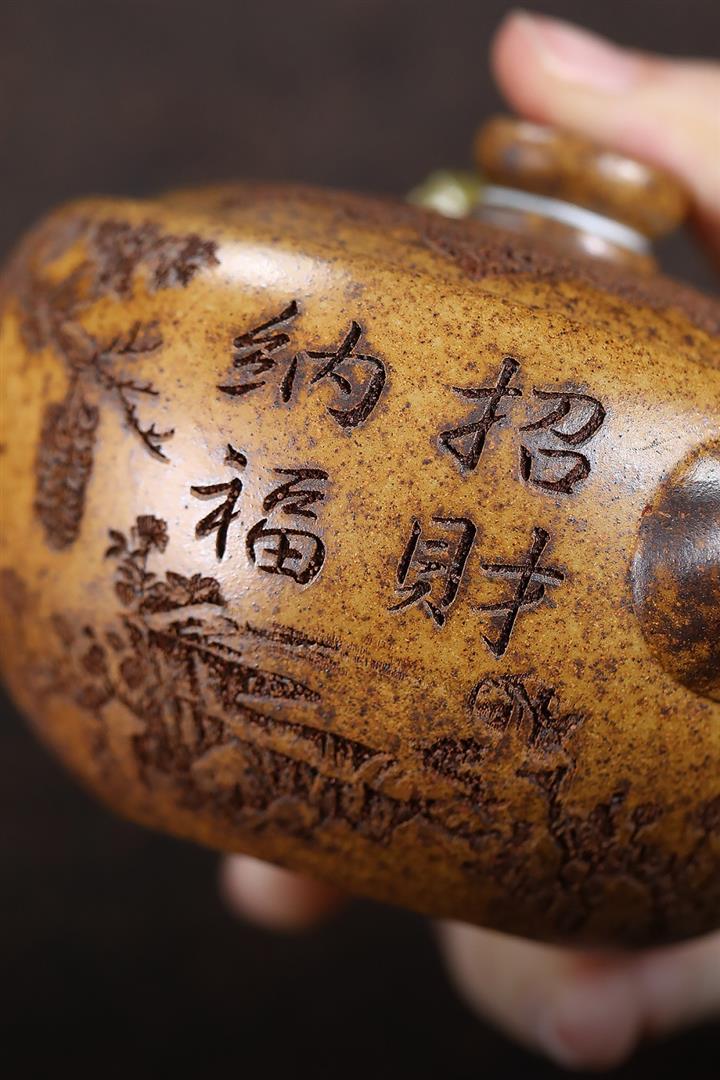 招財
納福